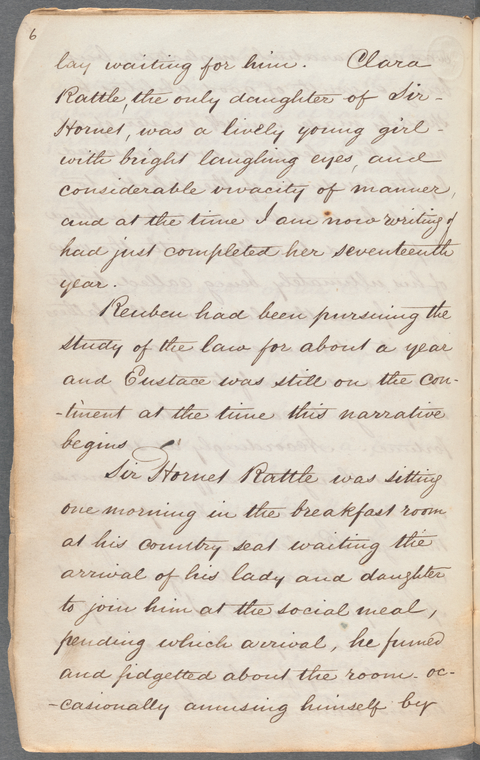 6
lay waiting for him. Clara
Rattle, the only daughter of Sir
Hornet, was a lively young girl -
with bright laughing eyes, and
considerable vivacity of manner,
and at the time I am now writing of
had just completed her seventeenth
year.
Reuben had been pursuing the
study of the law for about a year
and Eustace was still on the con-
-tinent at the time this narrative
begins
Sir Hornet Rattle was sitting
one morning in the breakfast room
at his country seat waiting the
arrival of his lady and daughter
to join him at the social meal,
pending which arrival, he fumed
and fidgetted about the room - oc-
-casionally amusing himself by